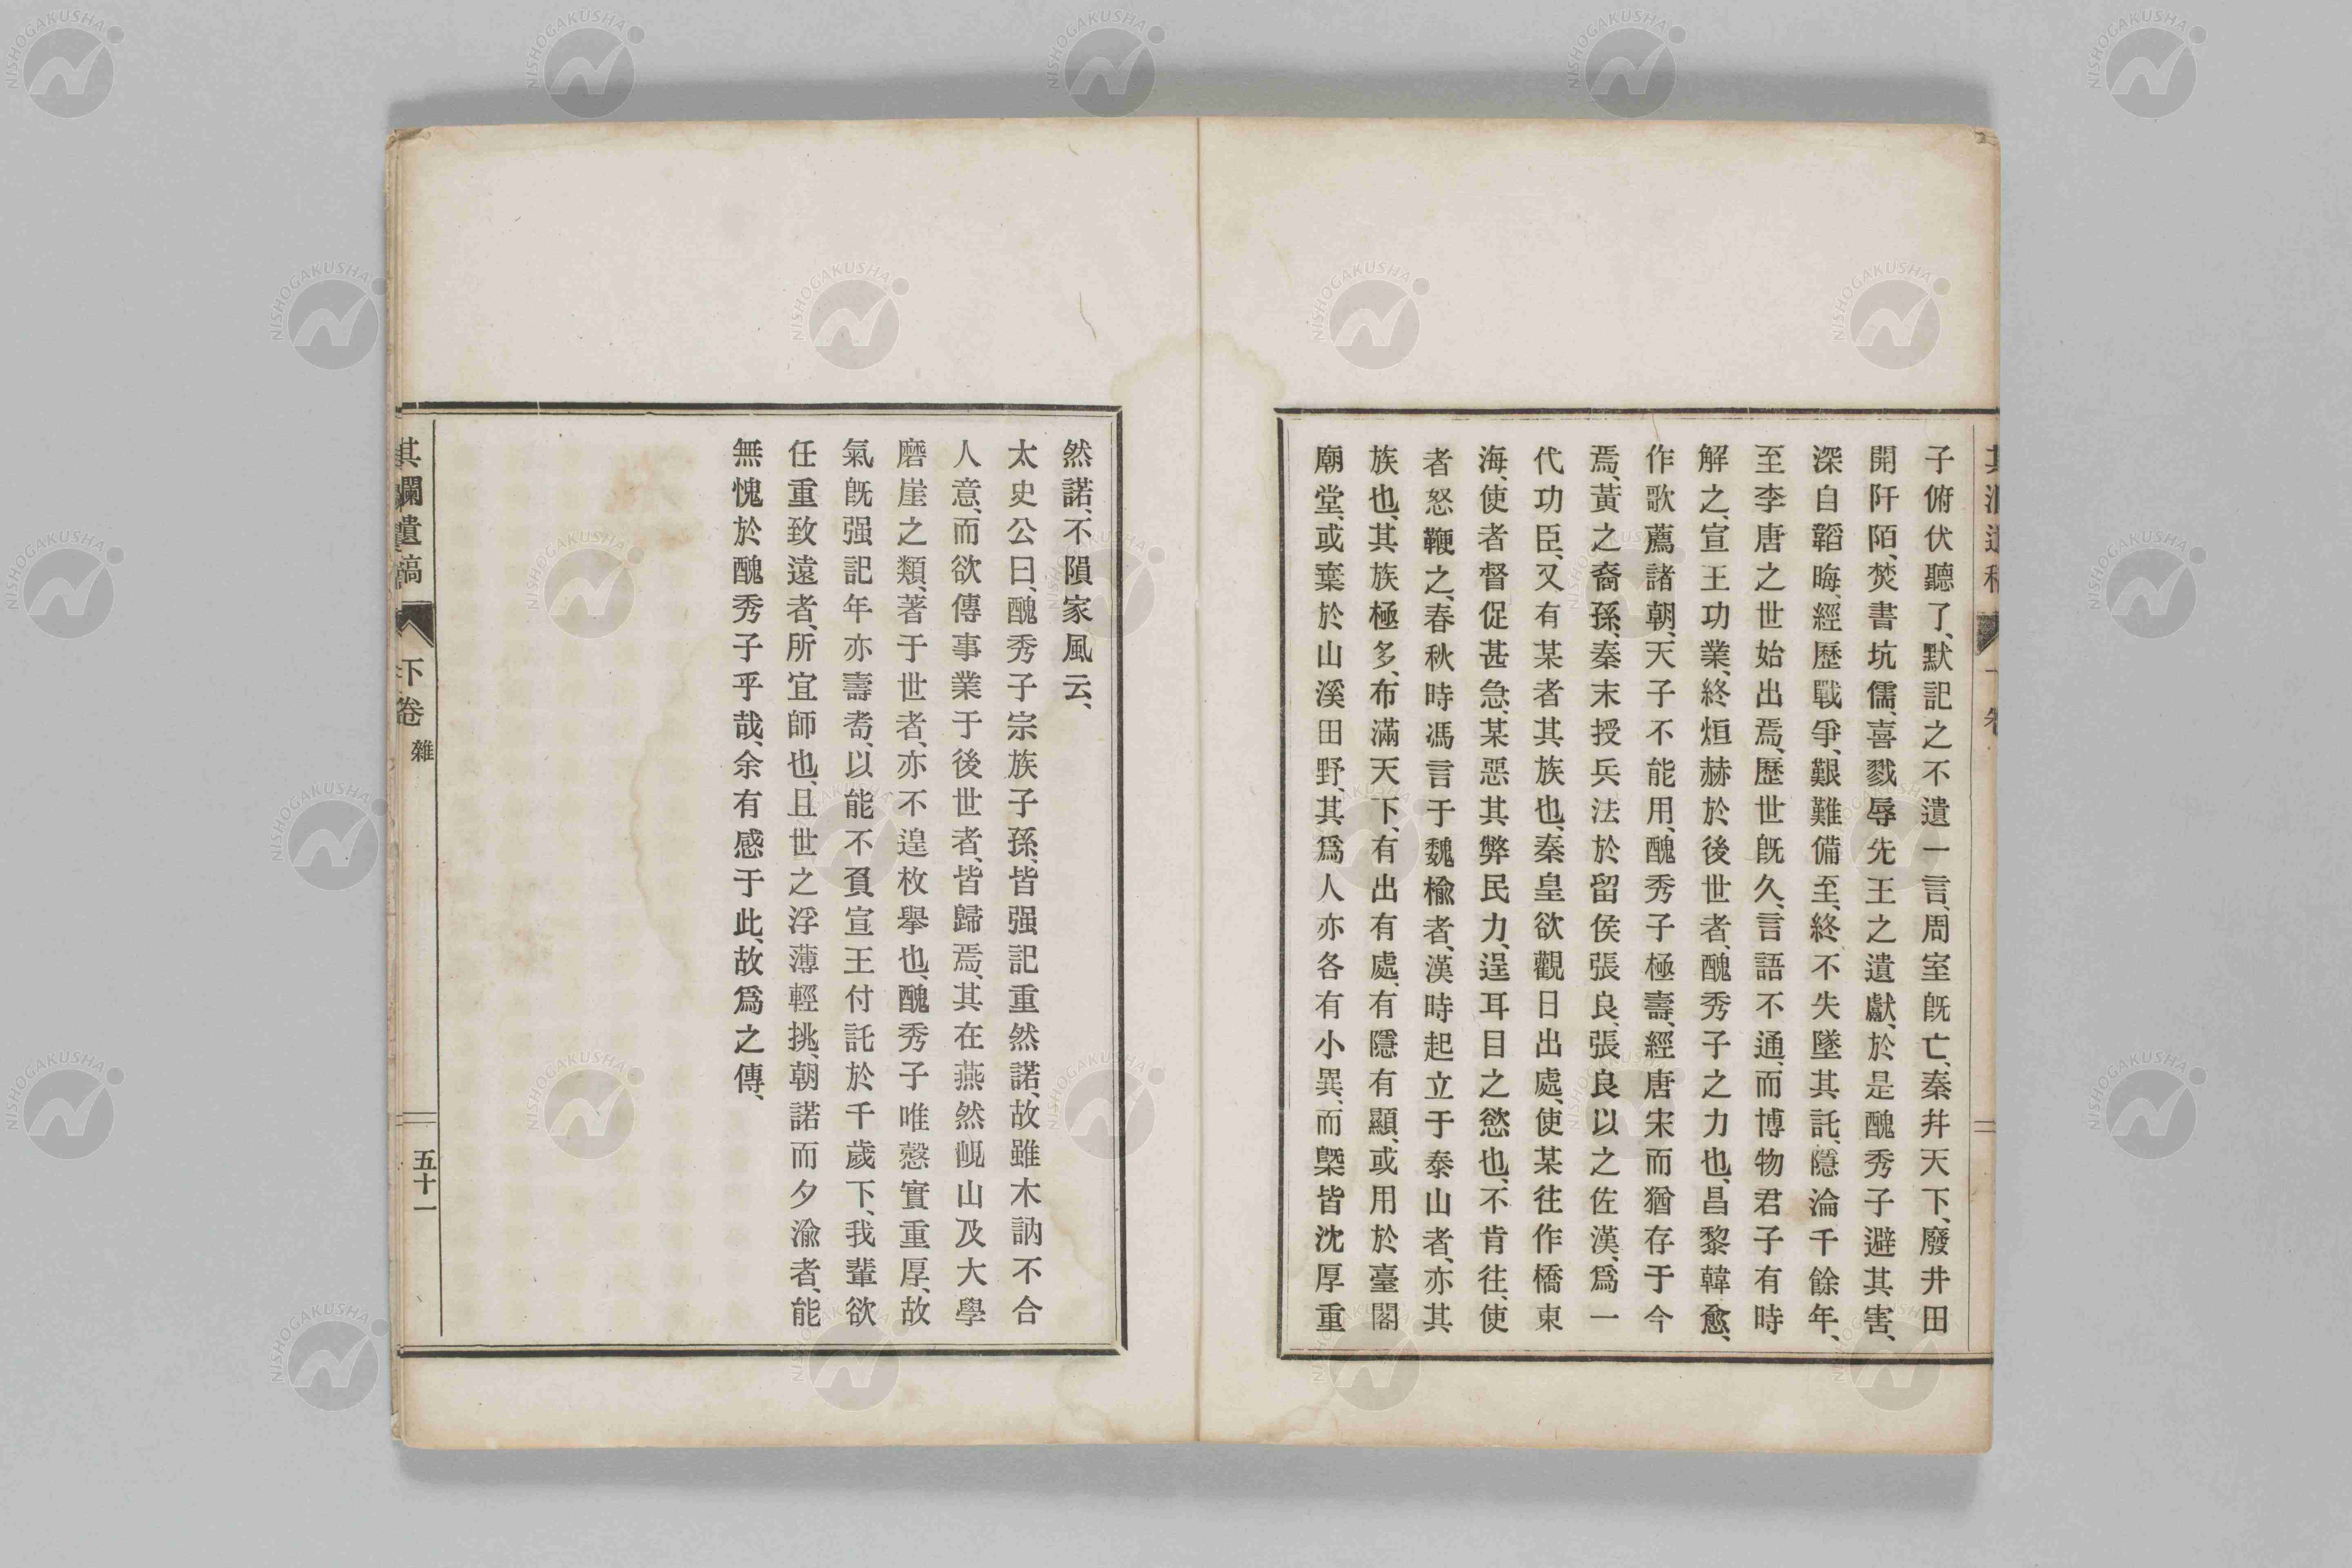 子俯伏聽了、默記之不遺一言、周室既亡、秦幷天下、廢井田
開阡陌、焚書坑儒、喜戮辱先王之遺獻、於是醜秀子避其害、
深自韜晦、經歷戰爭、艱難備至、終不失墜其託、隱淪千餘年、
至李唐之世始出焉、歷世既久、言語不通、而博物君子有時
解之、宣王功業、終烜赫於後世者、醜秀子之力也、昌黎韓愈、
作歌薦諸朝、天子不能用、醜秀子極壽、經唐宋而猶存于今
焉、黃之裔孫、秦末授兵法於留侯張良、張良以之佐漢、爲一
代功臣、又有某者其族也、秦皇欲觀日出處、使某往作橋東
海、使者督促甚急、某惡其弊民力、逞耳目之慾也、不肯往、使
者怒鞭之、春秋時馮言于魏楡者、漢時起立于泰山者、亦其
族也、其族極多、布滿天下、有出有處、有隱有顯、或用於臺閣
廟堂、或棄於山溪田野、其爲人亦各有小異、而槩皆沈厚重
然諾、不隕家風云、
太史公曰、醜秀子宗族子孫、皆强記重然諾、故雖木訥不合
人意、而欲傳事業于後世者、皆歸焉、其在燕然峴山及大學
磨崖之類、著于世者、亦不遑枚擧也、醜秀子唯慤實重厚、故
氣既强記年亦壽耇、以能不負宣王付託於千歲下、我輩欲
任重致遠者、所宜師也、且世之浮薄輕挑、朝諾而夕渝者、能
無愧於醜秀子乎哉、余有感于此、故爲之傳、
其瀾遺稿
下卷
雜
五十一
NISHOGAKUSHA